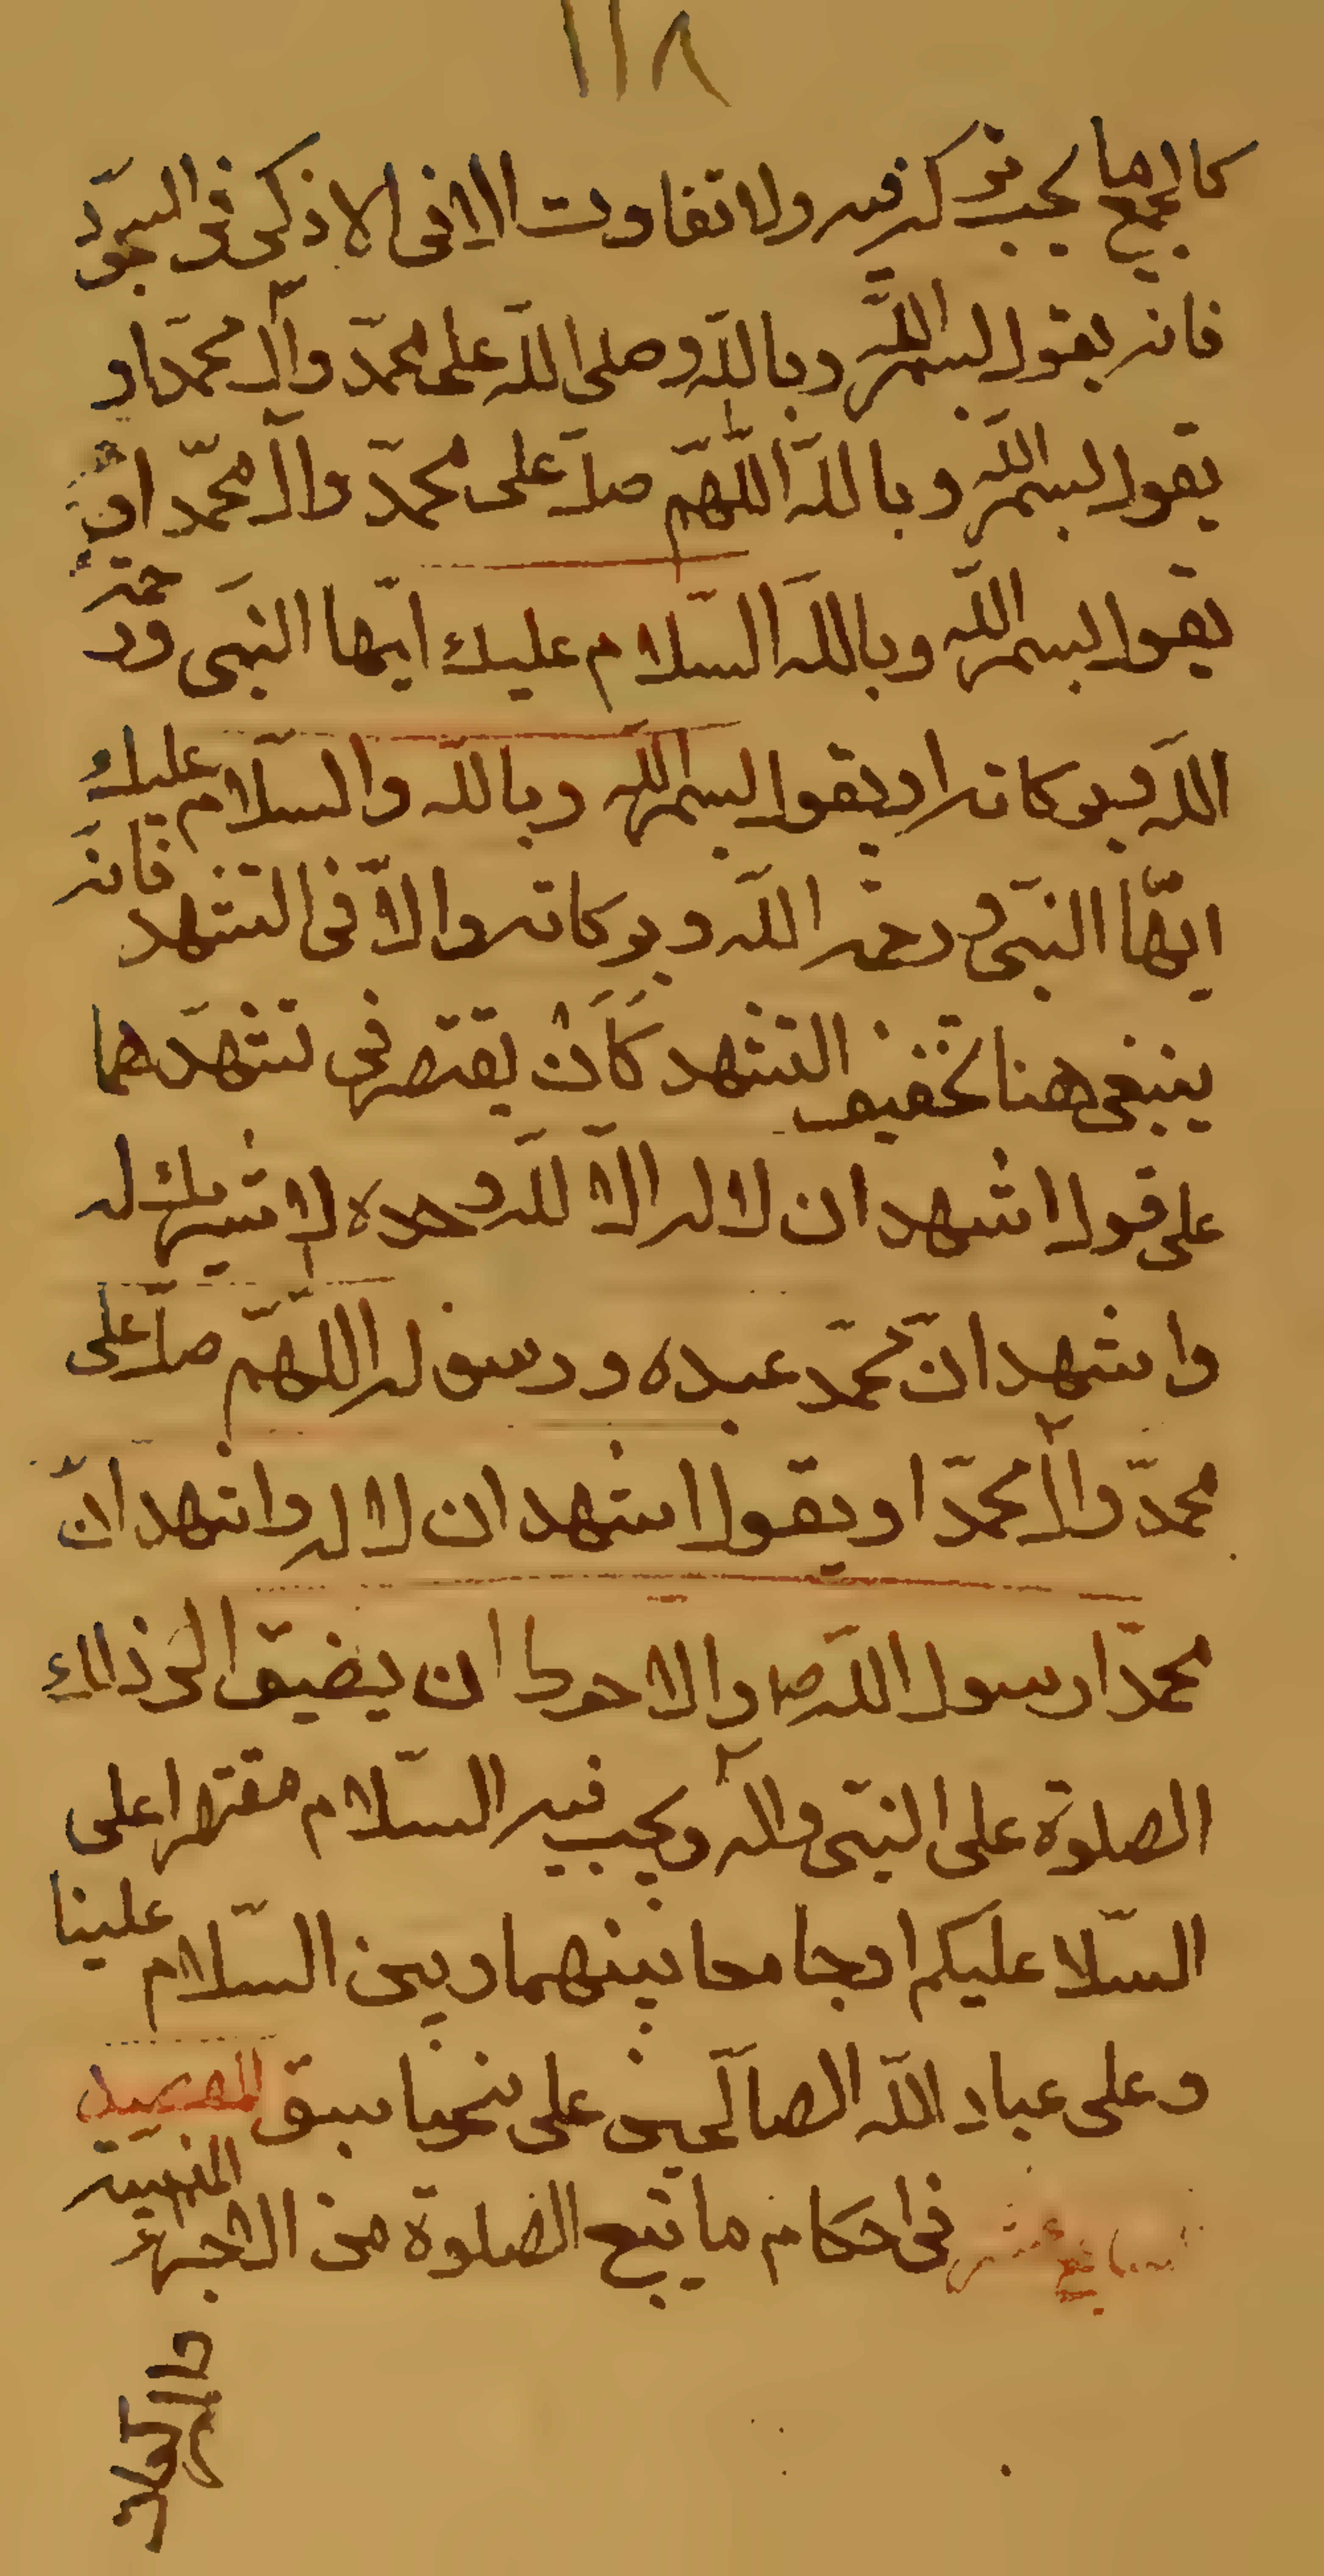 ١١٨
كاجمع ما يجب تركه فيه ولا تفاوت الا فى الاذكى فى السجود
فانه يقول بسم اللّه وباللّه وصلى اللّه على محمّد وآل محمّد او
يقول بسم اللّه وباللّه اللّهمّ صلّ على محمّد وآل محمّد او
يقول بسم اللّه وباللّه السّلام عليك ايّها النبى ورحمة
اللّه وبركاته او يقول بسم اللّه وباللّه والسّلام عليك
ايّها النبّى ورحمة اللّه وبركاته والّا فى التشهد فانه
ينبغى هنا تخفيف التشهد كأن يقتصر فى تشهّدهما
على قول اشهد ان لا اله الّا اللّه وحده لا شريك له
واشهد انّ محمّد عبده ورسوله اللّهمّ صلّ على
محمّد وآل محمّد او يقول اشهد ان لا اله واشهد انّ
محمّدا رسول اللّه ص والاحوط ان يضيف الى ذالك
الصلوة على النبّى وآله ويجب فيه السّلام مقتصرا على
السّلا عليكم او جامعا بينهما وبين السّلام علينا
وعلى عباد اللّه الصالحين على نحو ما سبق المقصد
السابع عشر فى احكام ما تتبع الصلوة من الاجزاء المنسية